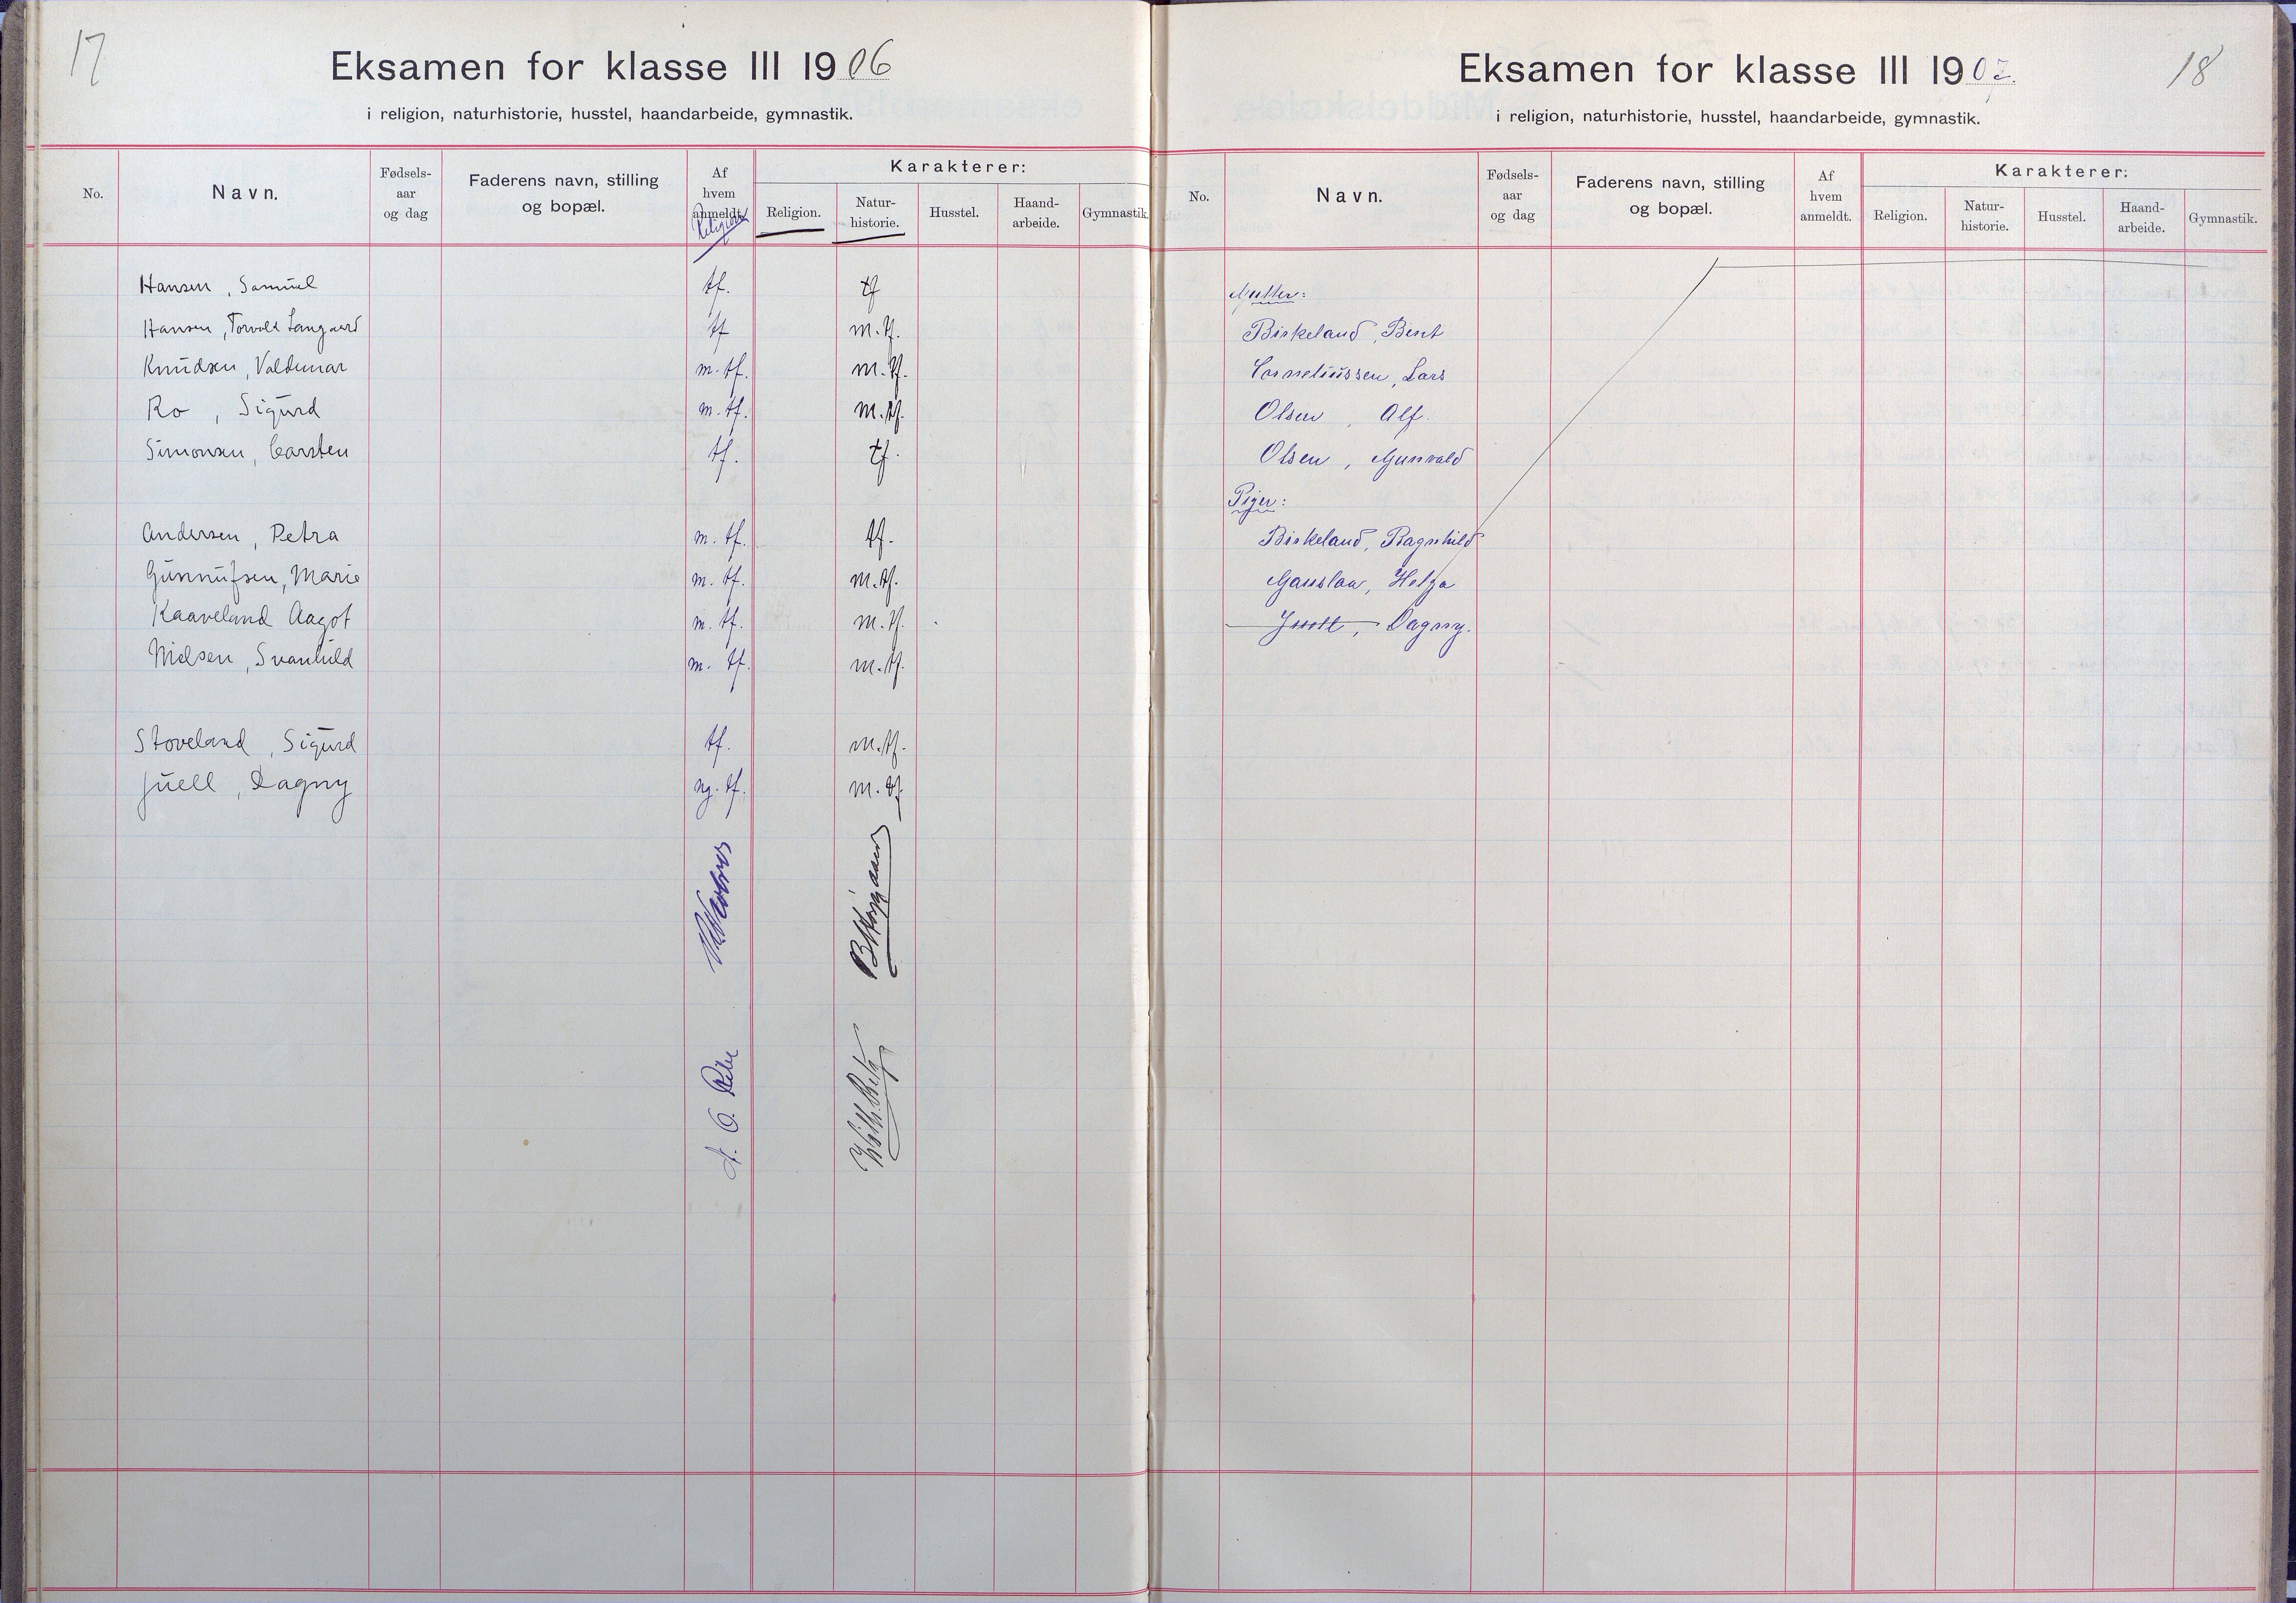 17
Eksamen for klasse III 1906
i religion, naturhistorie, husstel, haandarbeide, gymnastik.
No.
Navn.
Fødsels-
aar
og dag
Faderens navn, stilling
og bopæl.
Af
hvem
anmeldt.
Religion
Karakterer:
Religion.
Natur-
historie.
Husstel.
Haand-
arbeide.
Gymnastik.
Hansen, Samuel tf. tf
Hansen, Torvald Langaard tf m.tf.
Knudsen, Valdemar m.tf. m.tf.
Ro, Sigurd m.tf. m.tf.
Simonsen, Carsten tf. tf.
Andersen, Petra m.tf. tf.
Gunnufsen, Marie m.tf. m.tf.
Kaaveland Aagot m.tf. m.tf.
Nielsen, Svanhild m.tf. m.tf.
Stoveland, Sigurd tf. m.tf.
Juell, Dagny ng.tf. m.tf.
18
Eksamen for klasse III 1907.
i religion, naturhistorie, husstel, haandarbeide, gymnastik.
No.
Navn.
Fødsels-
aar
og dag
Faderens navn, stilling
og bopæl.
Af
hvem
anmeldt.
Karakterer:
Religion.
Natur-
historie.
Husstel.
Haand-
arbeide.
Gymnastik.
Gutter:
Birkeland, Bent
Corneliussen, Lars
Olsen, Alf
Olsen, Gunvald
Piger:
Birkeland, Ragnhild
Gauslaa, Helga
Juell, Dagny.